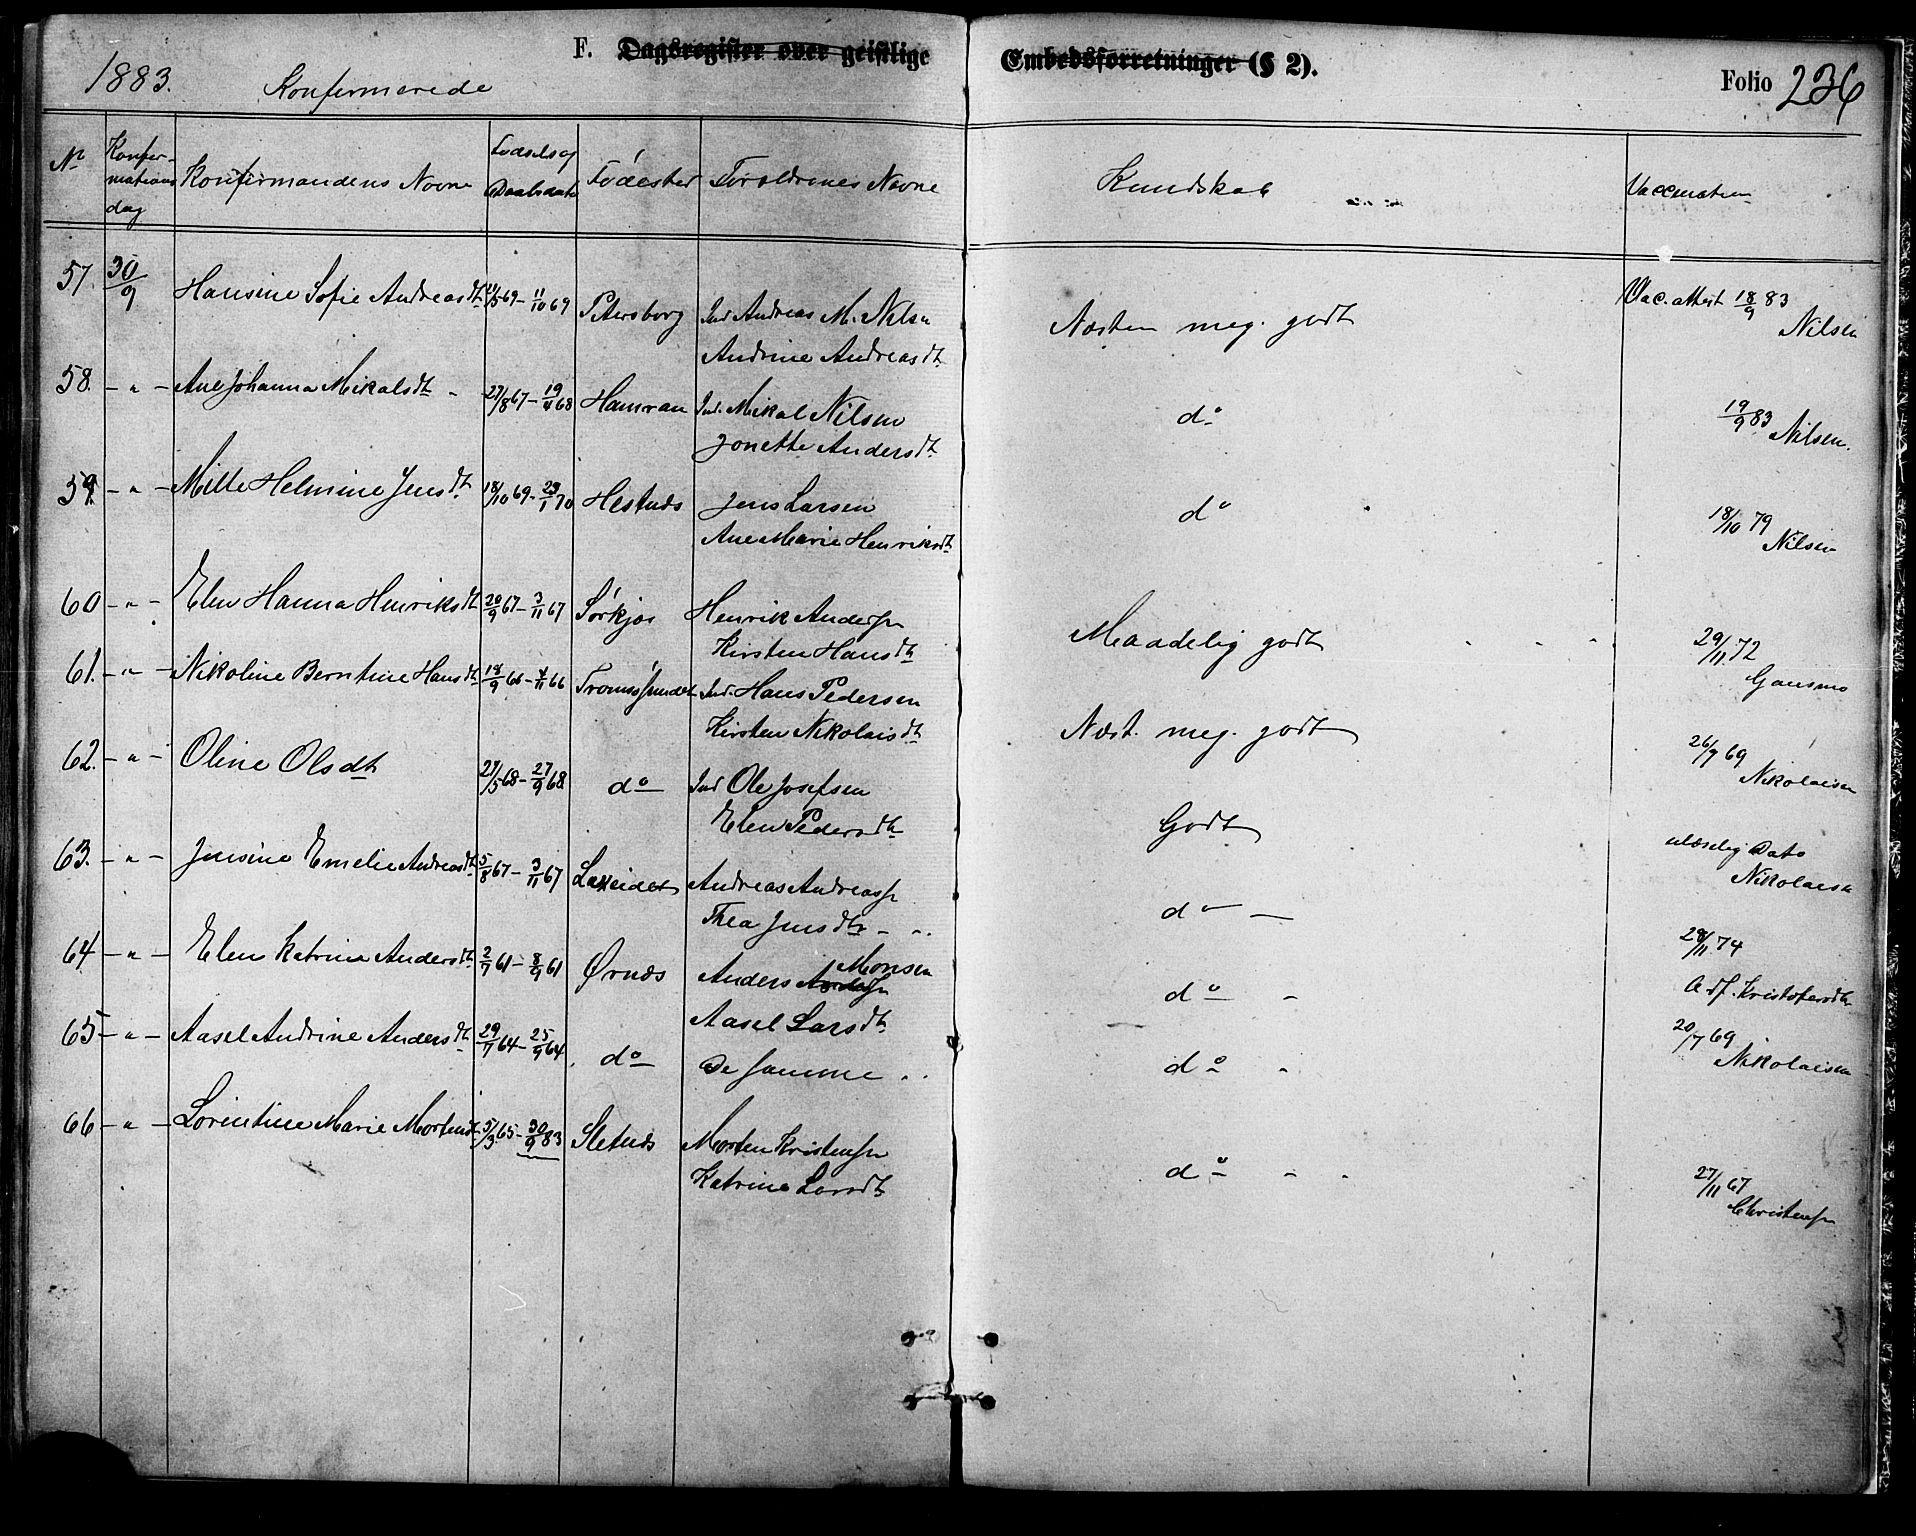 F. Dagsregister over geistlige Embedsforretninger (§ 2).
1883. Konfirmerede Folio 236
No Konfir-mations dag Konfirmandens Navne Fødsels og Daabsdato Fødested Forældrenes Navne Kundskab Vaccination
57. 30/9 Hansine Sofie Andreasdtr 11/10 69 Petersborg Ind Andreas M. Nilsn Næsten meg. godt Vac. attest 18/9 83 Nilsen
Andrine Andreasdtr
58. - " - Ane Johanna Mikalsdtr - 27/8 67 - 19/4 68 Hamran Ind. Mikal Nilsen do 19/9 83 Nilsen.
Jonette Andersdtr
59. - " - Mille Helmine Jensdtr 18/10 69 - 23/1 70 Hestnæs Jens Larsen do 18/10 79 Nilsen
Ane Marie Henriksdtr
60 - " - Elen Hanna Henriksdtr 20/9 67 - 3/11 67 Sørkjos Henrik Andersn Maadelig godt 29/11 72 Gausmo
Kirsten Hansdtr
61. - " - Nikoline Berntine Hansdtr 18/9 66 - 4/11 66 Tromssundet Ind. Hans Pedersen Næst. meg. godt 26/7 69 Nikolaisen
Kirsten Nikolaisdtr
62. - " - Oline Olsdtr 27/9 68 do Ind Ole Josefsen Godt ulæselig Dato Nikolaisen
Elen Pedersdtr
63. - " - Jensine Emelie Andreasdtr 5/8 67 - 3/11 67 Laxeidet Andreas Andreassn do 28/11 74
Thea Jensdtr Adf. Kristofersdtr
64 - " - Elen Katrine Andersdtr 2/7 61 - 8/9 61 Ørnæs Anders Monsen do 20/7 69 Nikolaisen
Aasel Larsdtr
65 - " - Aasel Andrine Andersdtr 29/7 64 - 25/9 64 do De samme do
66 - " - Lorentine Marie Mortensdtr 5/3 65 - 30/9 83 Sletnæs Morten Kristensn do 27/11 67 Christensn
Katrine Larsdtr